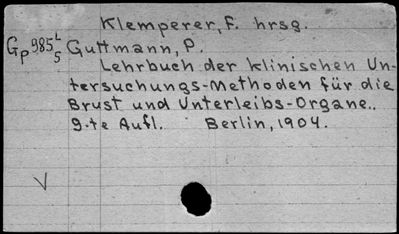 Klemperer, F. hrsg.
Gp 985 L/5 Guttmann, P.
Lehrbuch der klinischen Un-
tersuchungs-Methoden für die
Brust und Unterleibs-Organe..
9-te Aufl. Berlin, 1904.
√